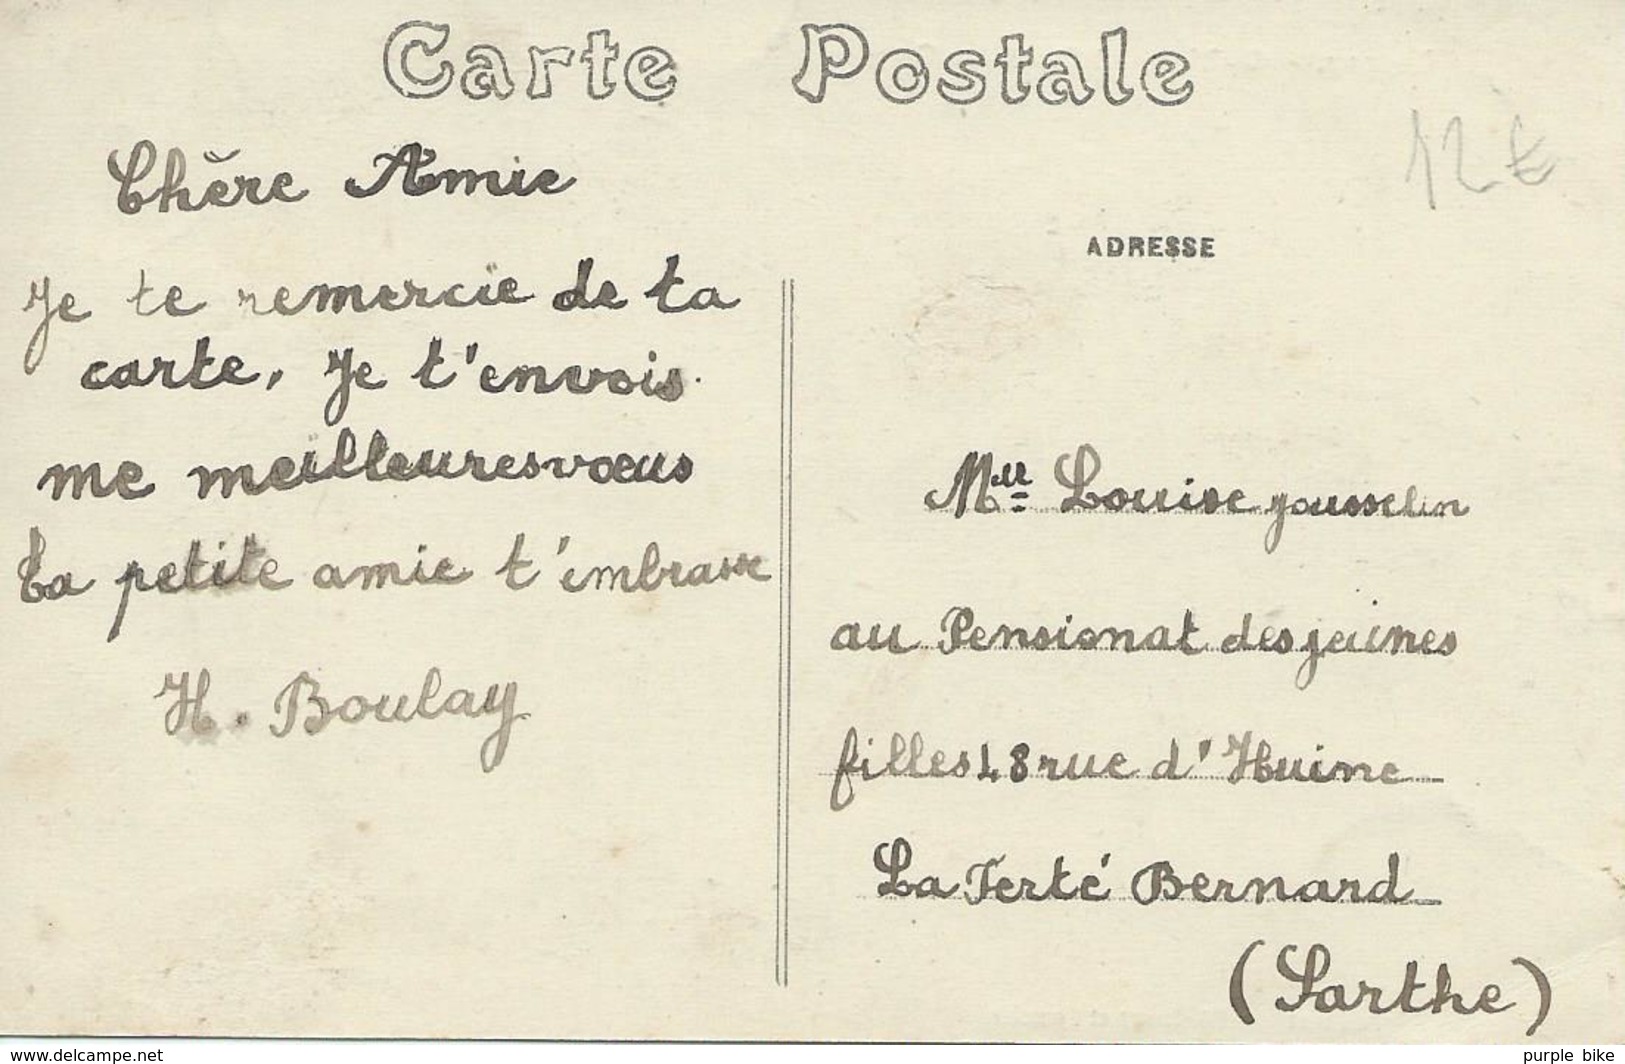 Carte Postale
12€
Chère Amie
Je te remercie de ta
carte. Je t'envois
me meilleures vœus
Ta petite amie t'embrasse
H. Boulay
ADRESSE
Melle Louise Jousselin
au Pensionat des jeunes
filles 48 rue d'Huine
La Ferté Bernard
(Sarthe)
www.delcampe.net
purple bike